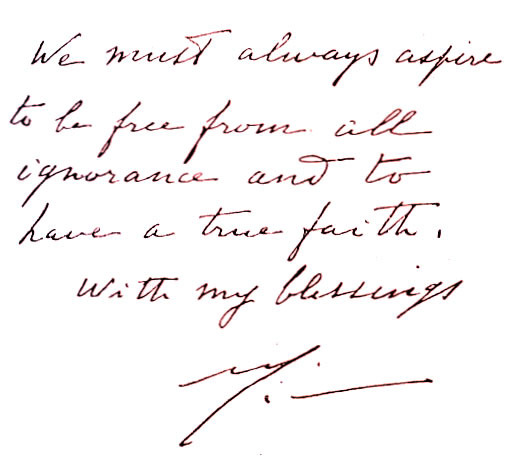 We must always aspire
to be free from all
ignorance and to
have a true faith.
With my blessings